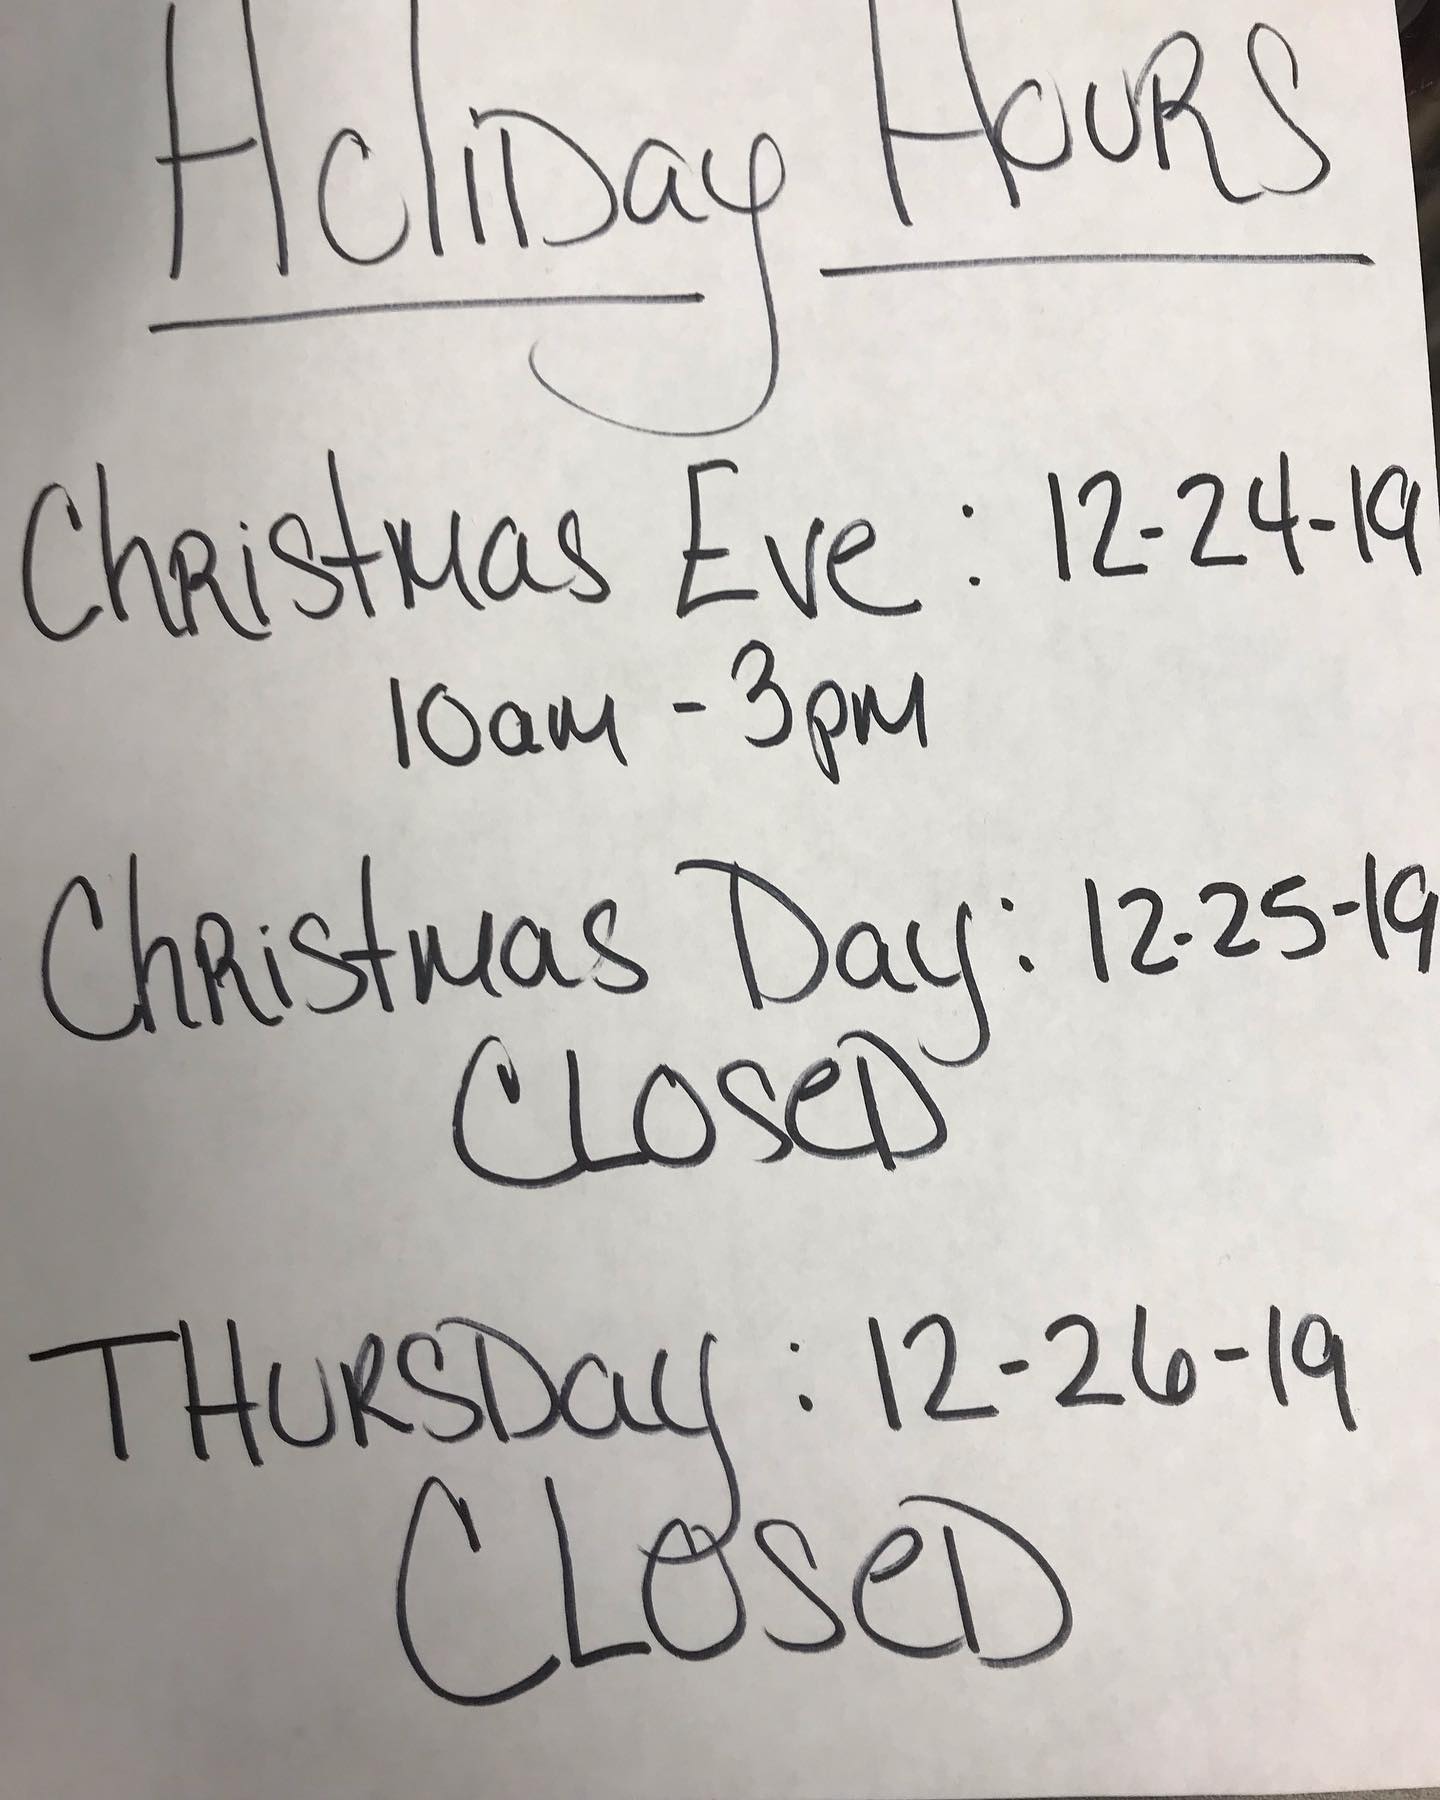 Holiday Hours
Christmas Eve : 12-24-19
10am - 3pm
Christmas Day: 12-25-19
CLOSeD
THURSDay : 12-26-19
CLOSeD